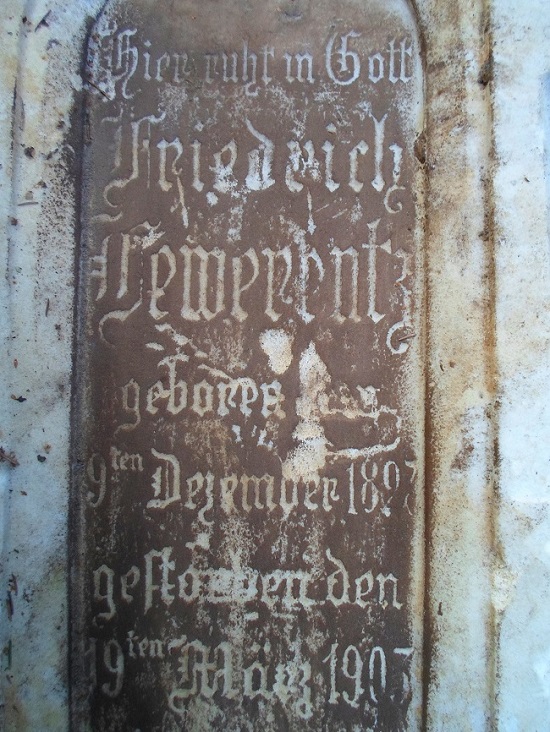 Hier ruht in Gott
Friedrich
Lewerentz
geboren
9ten Dezember 1897
gestorben den
19ten März 1907